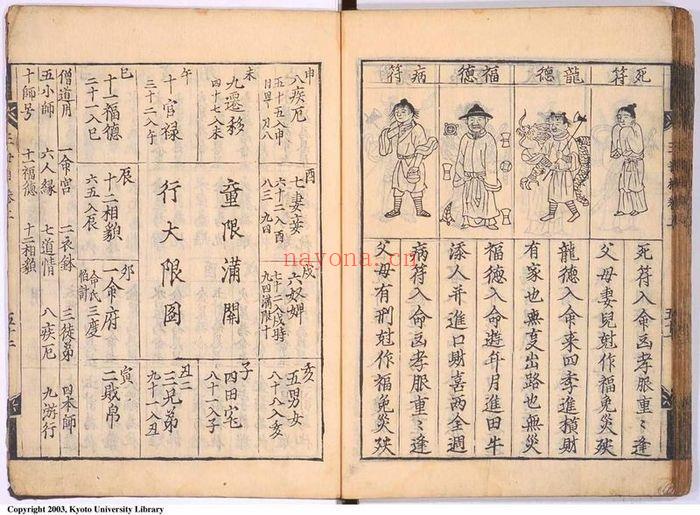 死符
龍德
福德
病符
死符入命主孝服重〻逢
父母妻兒尅作福免災殃
龍德入命來四季進橫財
有家也無
出路也無災
福德入命遊年月進田牛
添人并進口財喜兩全週
病符入命主孝服重〻逢
父母有刑尅作福免災殃
申
八疾厄
五十五入申
未
九遷移
四十七入未
午
十官禄
三十二入午
巳
十一福德
二十一入巳
酉
七妻妾
六十二入酉
戌
六奴婢
七十二入戌時
亥
五男女
八十八入亥
童限滿開
行大限圖
辰
十二相貌
六五入辰
卯
一命府
寅
二財帛
丑
三兄弟
九十一入丑
子
四田宅
八十一入子
僧道用
一命宮
二衣鉢
三徒弟
四本師
五小師
六人縁
七道情
八疾厄
九游行
十師号
十一福德
十二相貌
nayona.cn
Copyright 2003, Kyoto University Library